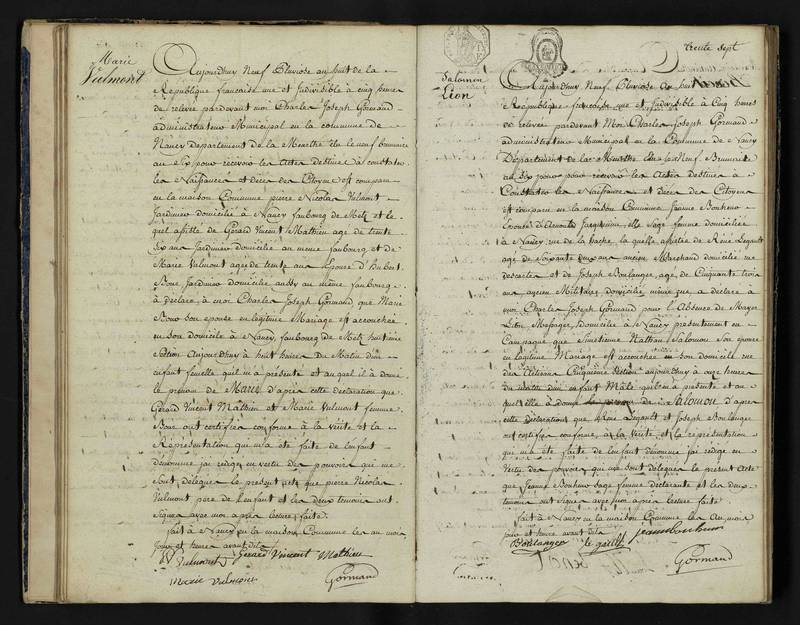 Marie
Vulmont
Aujourdhuy Neuf Pluviose an huit de la
Republique francaise une et Indivisible à cinq heures
de relevée pardevant moi Charles Joseph Gormand
administrateur Municipal en la commune de
Nancy Departement de la Meurthe élu le neuf brumaire
an Six pour recevoir les Actes destinés à constater
les Naissances et décès des Citoyens est comparu
en la maison Commune pierre Nicolas Vulmont
Jardinier domicilié à Nancy faubourg de Metz et le
quel assisté de Gerard Vincent Mathieu age de trente
Six ans Jardinier domicilié au meme faubourg et de
Marie Vulmont agée de trente ans Epouse d'hubert
Jardinier domicilié aussy au même faubourg
a declaré à moi Charles Joseph Gormand, que Marie
son epouse en legitime Mariage est accouchée
en son domicile à Nancy, faubourg de Metz huitieme
Section Aujourdhuy à huit heures Du Matin d'un
enfant femelle quil m'a présenté et auquel il a donné
le prenom de Marie d'après cette declaration que
Gerard Vincent Mathieu et Marie Vulmont femme
ont certifiée conforme à la vérité et la
Représentation qui m'a été faite de l'enfant
dénommé jai redigé en vertu des pouvoirs qui me
sont délégués le présent acte que pierre Nicolas
Vulmont pere de l'enfant et les deux temoins ont
signés avec moi après lecture faite.
fait à Nancy en la maison Commune les an mois
Jour et heure avant dits
Vulmont Gerard Vincent Mathieu
Marie Vulmont Gormand
trente sept
Salomon
Lion
Aujourdhuy Neuf Pluviose an huit
Republique francaise une et Indivisible à Cinq heures
de relevée pardevant Moi Charles Joseph Gormand
administrateur Municipal en la Commune de Nancy
Département de la Meurthe élu le Neuf Brumaire
an Six pour recevoir les Actes destinés à
Constater les Naissances et décès des Citoyens
est comparu en la maison Commune Jeanne Bonheur
Epouse d' Jacqueminelle Sage femme domiciliée
à Nancy rue de la hache, la quelle assistée de René Legault
age de Soixante deux ans ancien Marchand domicilié rue
descartes et de Joseph Boulanger, age de Cinquante trois
ans ancien Militaire domicilié même rue a déclaré à
moi Charles Joseph Gormand pour l'Absence de Mayer
Lion Messager, domicilié à Nancy presentement en
Campagne que Nathan Salomon Son epouse
en legitime Mariage est accouchée en son domicile rue
des Artisans Cinquieme Section aujourdhuy à onze heures
du matin d'un enfant Mâle quelle m'a présenté et au
quel elle a donné de Salomon d'après
cette declaration que René Legault et Joseph Boulanger
ont certifiée conforme à la vérité, et la représentation
qui m'a été faite de l'enfant dénommé jai rédigé en
Vertu des pouvoirs qui me sont délégués le présent acte
que Jeanne Bonheur sage femme declarante et les deux
temoins ont signés avec moi après lecture faite.
fait à Nancy en la maison Commune les An mois
jour et heure avant dits
Boulanger le gault jeanne Bonheur
Gormand